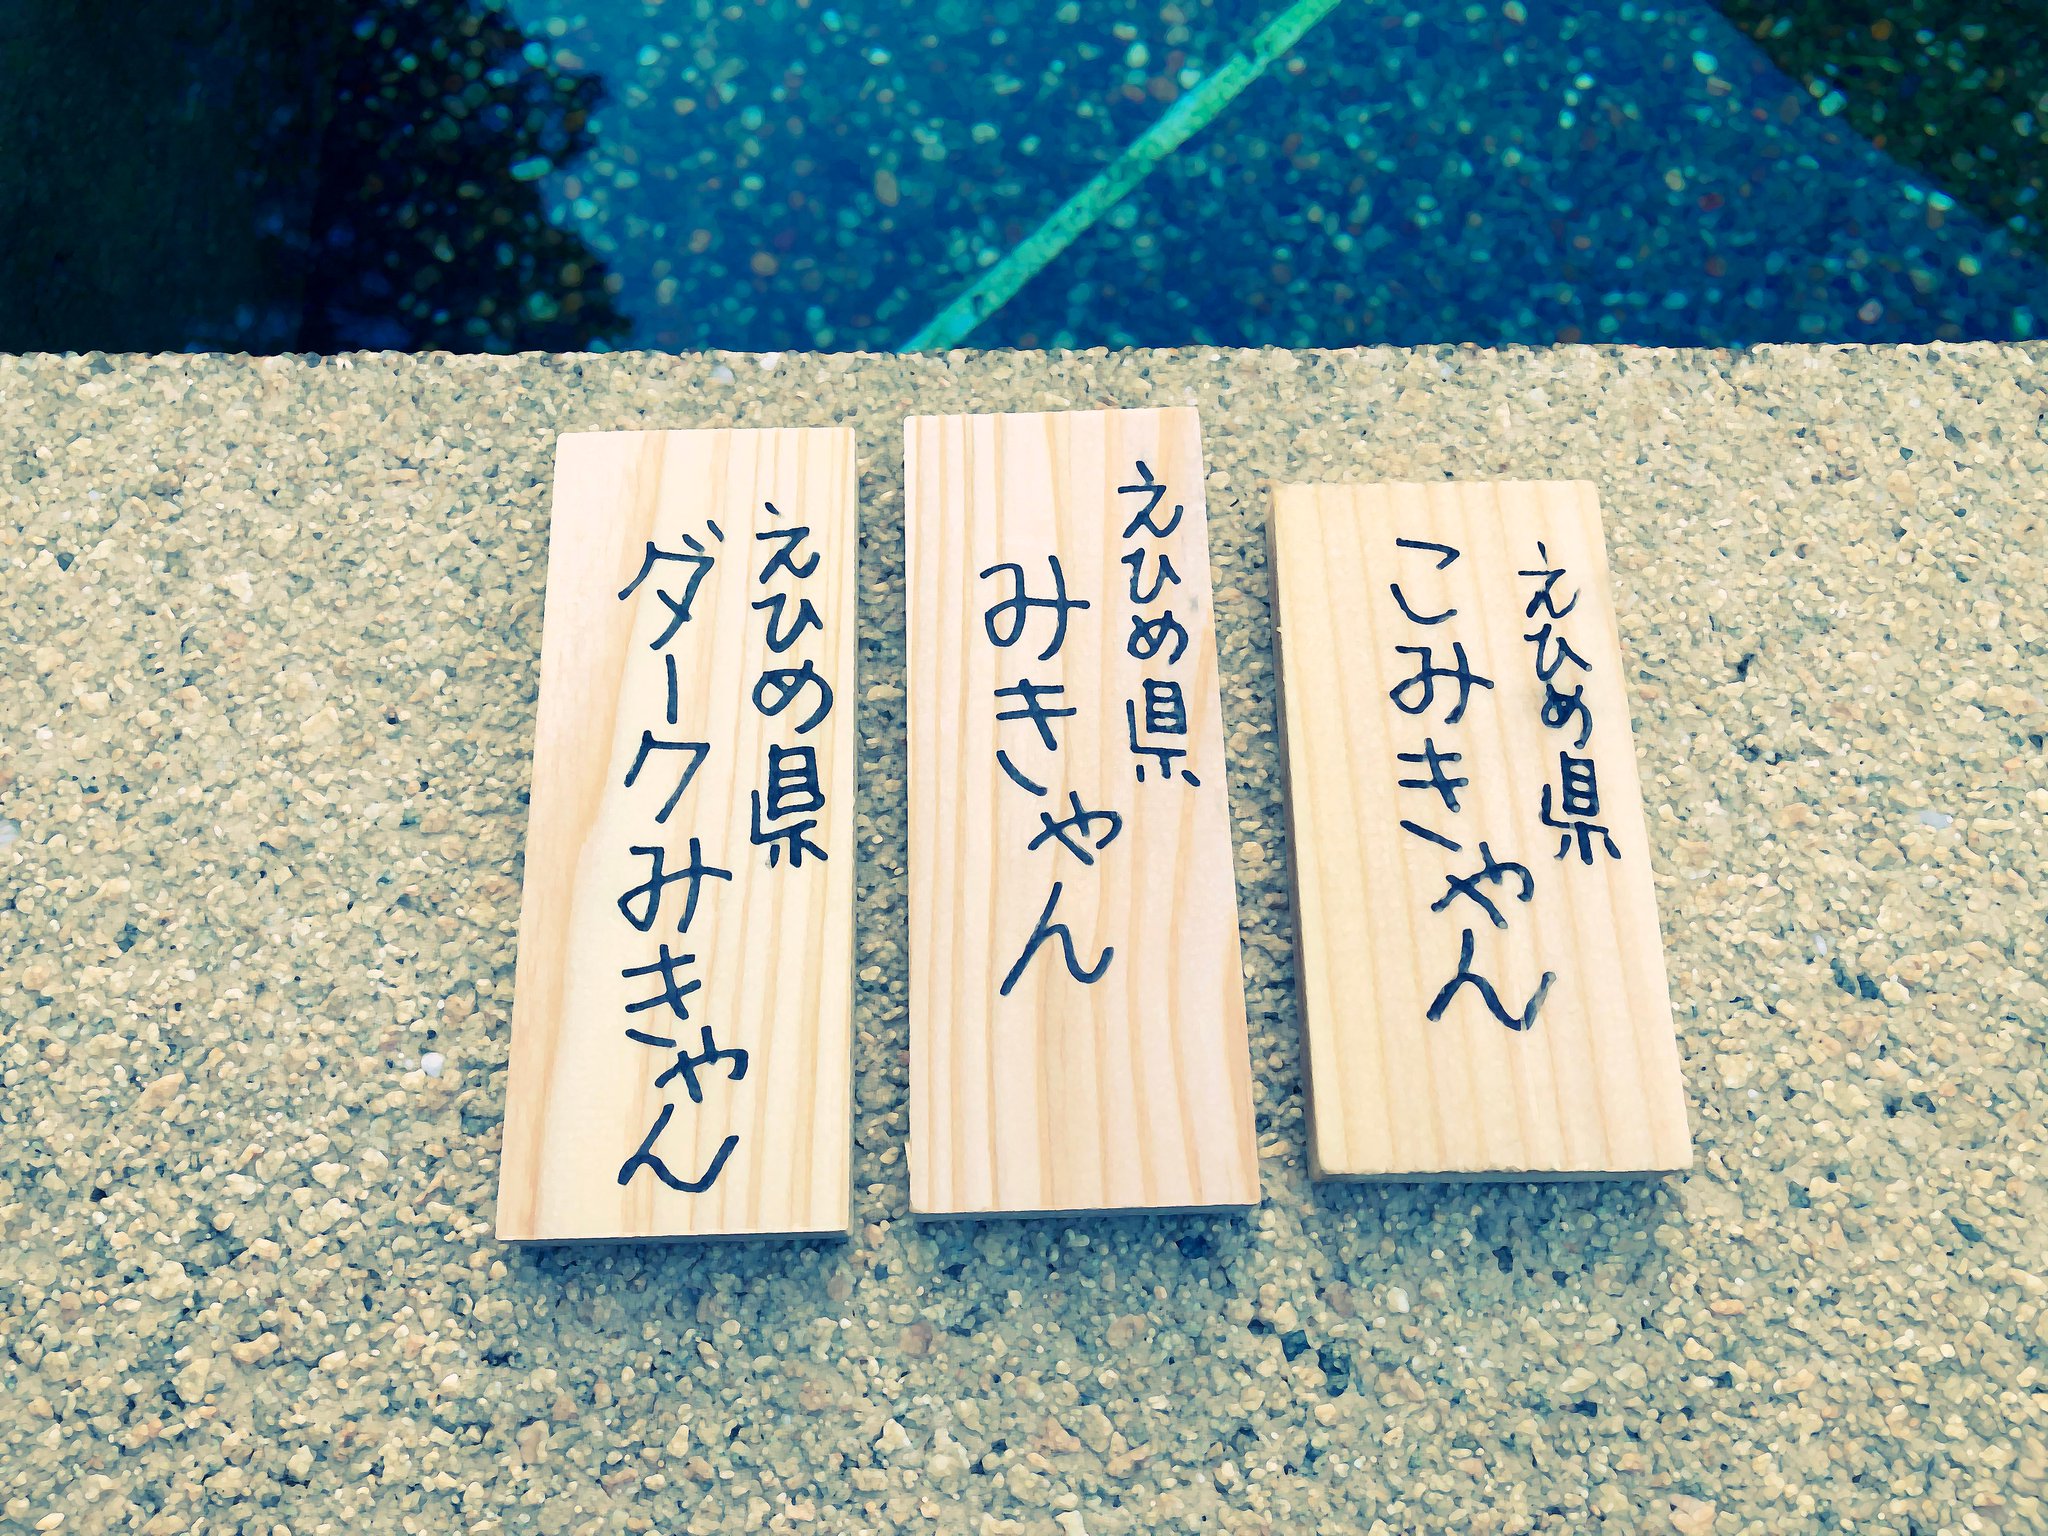 えひめ県
ダークみきゃん
えひめ県
みきゃん
えひめ県
こみきゃん